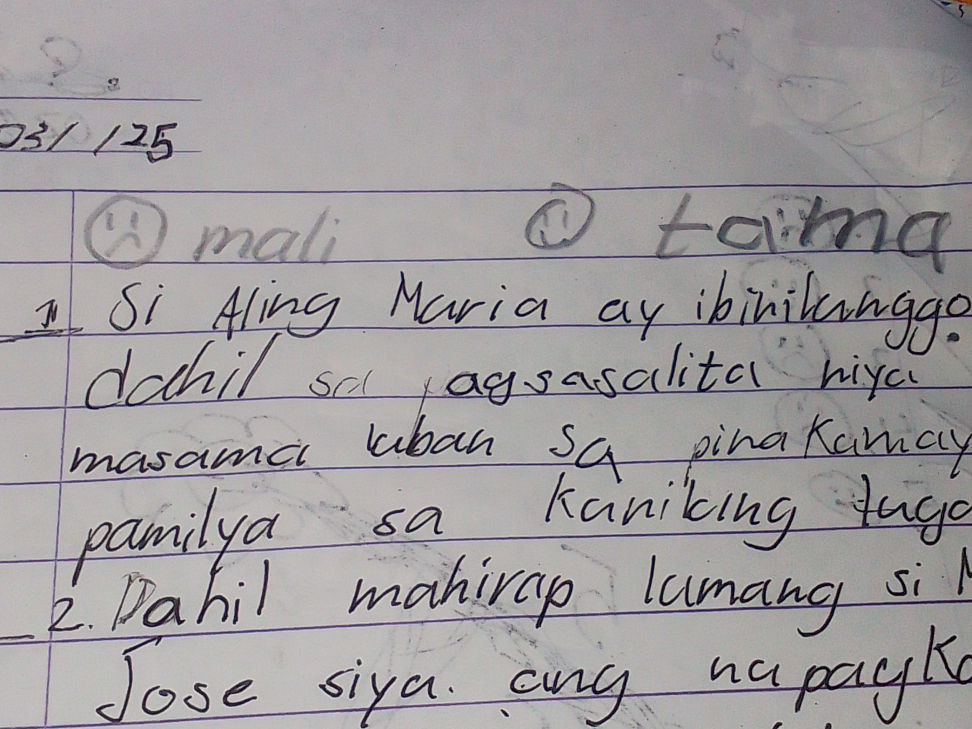 03/ /25
mali tama
1. Si Aling Maria ay ibinilanggo.
dahil sa pagsasalita niya
masama laban sa pinakamay
pamilya sa kanikang
2. Dahil mahirap lamang si M
Jose siya. ang napagka